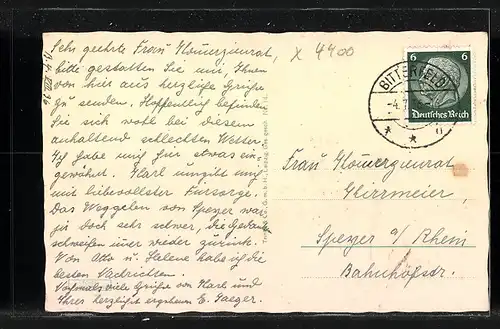 Sehr geehrte Frau Kommerzienrat,
bitte gestatten Sie mir, Ihnen
von hier aus herzliche Grüße
zu senden. Hoffentlich befinden
Sie sich wohl bei diesem
anhaltend schlechten Wetter.
Ich habe mich hier etwas ein=
gewöhnt. Karl umgibt mich
mit liebevollster Fürsorge.
Das Weggehen von Speyer war
ja doch sehr schwer, die Gedanken
schweifen immer wieder zurück.
Von Otto u. Helene habe ich die
besten Nachrichten.
Nochmals viele Grüße von Karl und
Ihrer herzlichst ergebenen E. Jaeger.
x 4400
6 6
Deutsches Reich
BITTERFELD
-4.7
Frau Kommerzienrat
Speyer a/Rhein
Bahnhofstr.